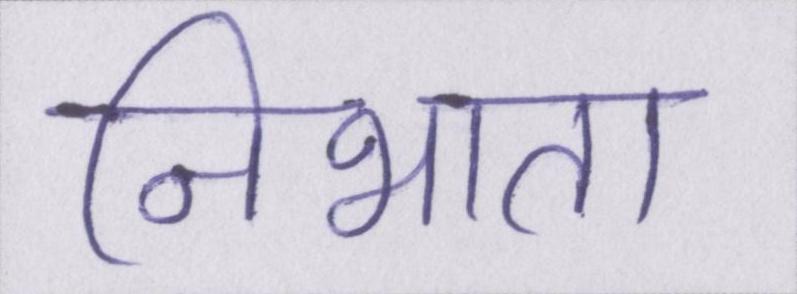 निभाता